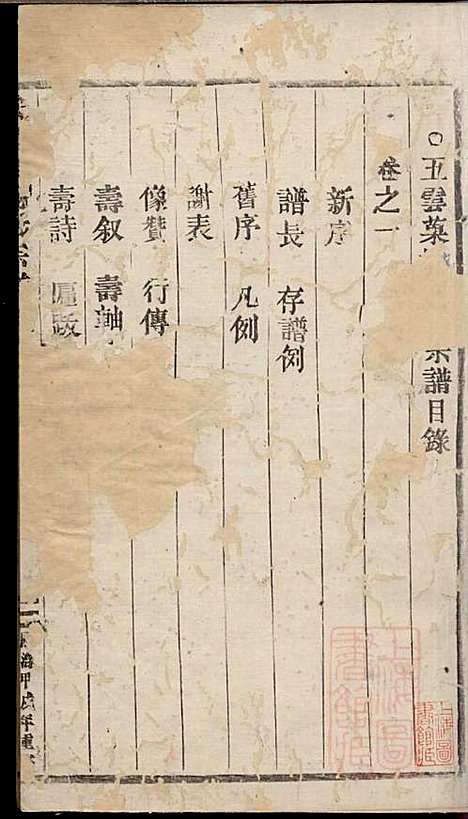 ○五雲葉 宗譜目錄
卷之一
新序
譜長 存譜例
舊序 凡例
謝表
像贊 行傳
壽叙 壽軸
壽詩 匾跋
同治甲戌年重
上海圖書館藏
上海圖書館藏